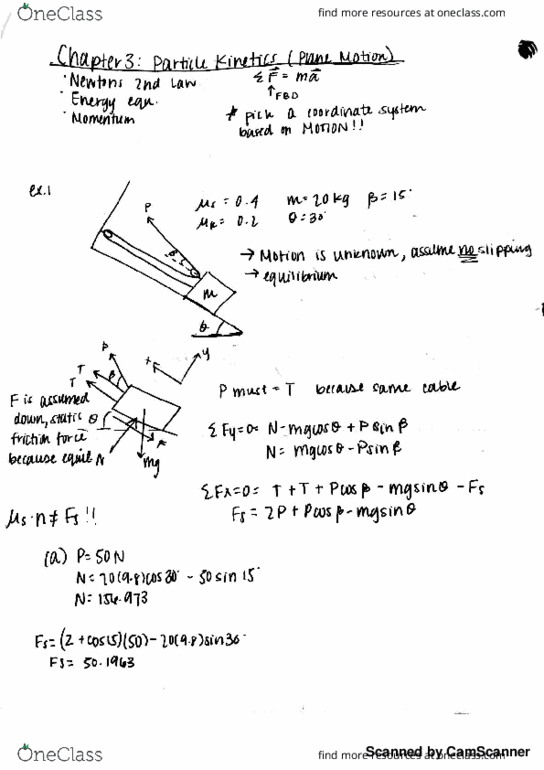 OneClass
find more resources at oneclass.com
Chapter 3: Particle Kinetics (Plane Motion)
· Newtons 2nd Law
· Energy eqn.
· Momentum
ΣF⃗ = ma⃗
↑ FBD
* pick a coordinate system
based on MOTION!!
ex.1
P
β
m
θ
μs = 0.4 m=20kg β=15°
μk = 0.2 θ=30°
→ Motion is unknown, assume no slipping
→ equilibrium
P
T
T
β
x
y
θ
F
N
mg
F is assumed
down, static
friction force
because equil
P must = T because same cable
ΣFy=0= N-mgcosθ + Psinβ
N= mgcosθ-Psinβ
ΣFx=0= T+T+Pcosβ-mgsinθ-Fs
Fs= 2P+Pcosβ-mgsinθ
μs·n≠Fs!!
(a) P=50N
N=20(9.8)cos30°-50sin15°
N=156.973
Fs=(2+cos15)(50)-20(9.8)sin30°
Fs= 50.1963
OneClass
find more resources at oneclass.com
Scanned by CamScanner